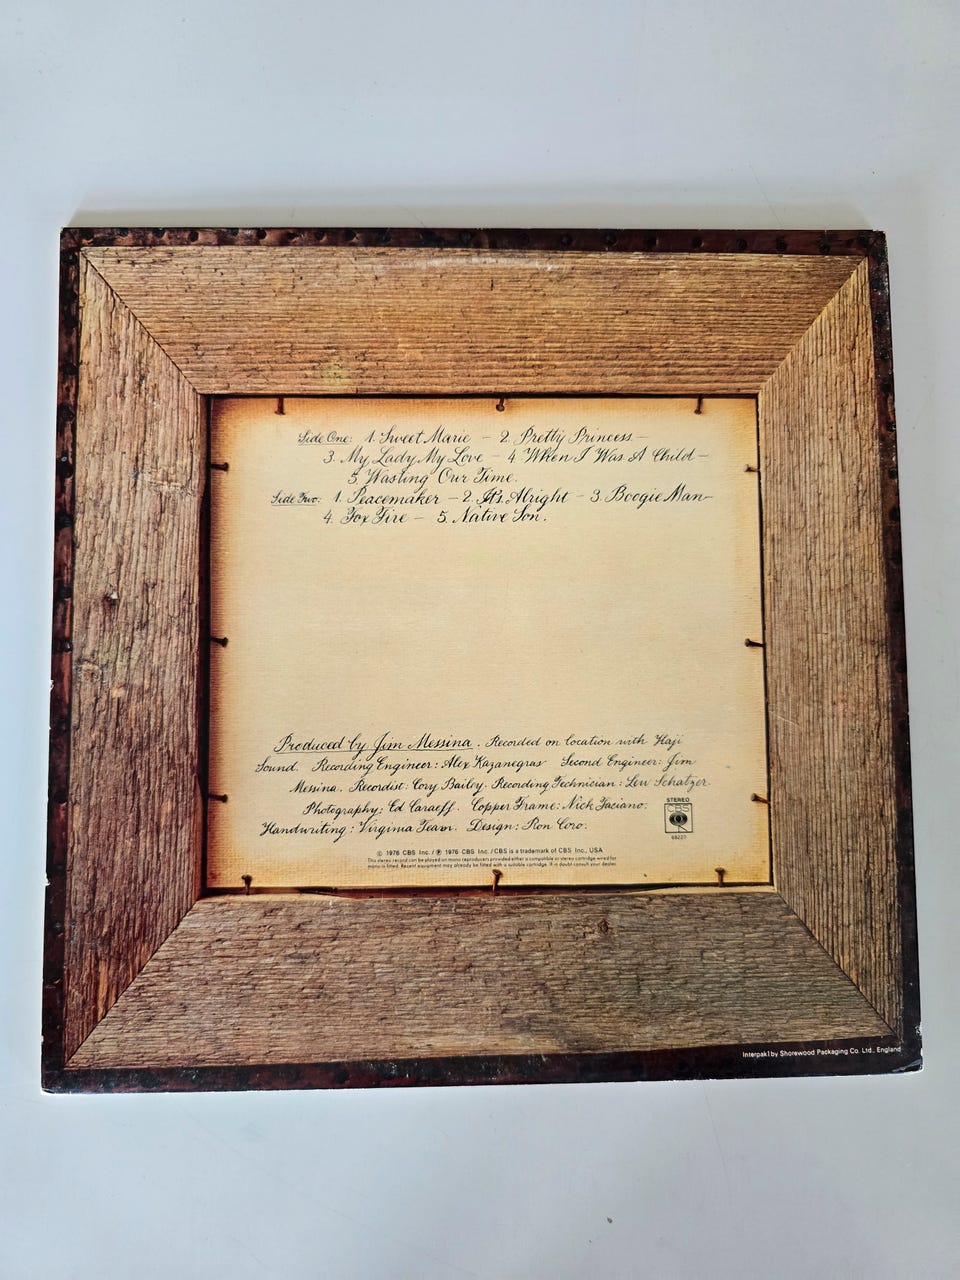 Side One: 1. Sweet Marie - 2. Pretty Princess -
3. My Lady, My Love - 4. When I Was A Child -
5. Wasting Our Time.
Side Two: 1. Peacemaker - 2. It's Alright - 3. Boogie Man -
4. Fox Fire - 5. Native Son.
Produced by Jim Messina. Recorded on location with Haji
Sound. Recording Engineer: Alex Kazanegras Second Engineer: Jim
Messina. Recordist: Cory Bailey. Recording Technician: Lew Schatzer.
Photography: Ed Caraeff. Copper Frame: Nick Faciano.
Handwriting: Virginia Team. Design: Ron Coro.
STEREO
CBS
69220
© 1976 CBS Inc. / ℗ 1976 CBS Inc. / CBS is a trademark of CBS Inc., USA
This stereo record can be played on mono reproducers provided either a compatible or stereo cartridge wired for
mono is fitted. Recent equipment may already be fitted with a suitable cartridge. If in doubt consult your dealer.
Interpak1 by Shorewood Packaging Co. Ltd., England